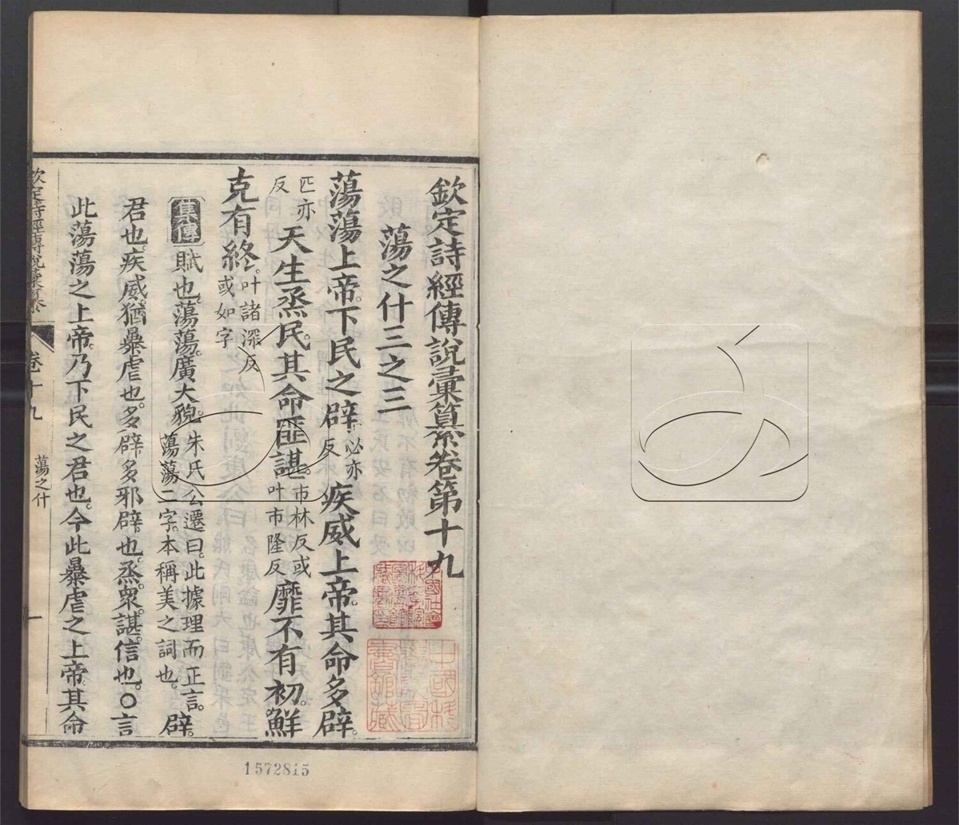 欽定詩經傳說彙纂卷第十九
蕩之什三之三
蕩蕩上帝。下民之辟。必亦反疾威上帝。其命多辟。
匹亦反天生烝民。其命匪諶。市林反或叶市隆反靡不有初。鮮
克有終。叶諸深反或如字
集傳賦也。蕩蕩。廣大貌。朱氏公遷曰。此據理而正言。蕩蕩二字。本稱美之詞也。辟。
君也。疾威。猶暴虐也。多辟。多邪辟也。烝。衆。諶。信也。○言
此蕩蕩之上帝。乃下民之君也。今此暴虐之上帝。其命
欽定詩經傳說彙纂
卷十九
蕩之什
一
1572815